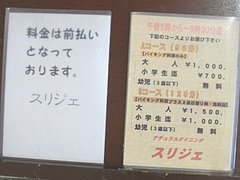 料金は前払い
となって
おります。
スリジェ
午後5時から~9時30分迄
下記のコースよりお選び下さい
Aコース(90分)
【バイキング料理のみ】
大人 ¥1,000
小学生迄 ¥700
幼児(3歳以下) 無料
Bコース(120分)
大人 ¥1,500
小学生迄 ¥1,000
幼児(3歳以下) 無料
ナチュラルダイニング
スリジェ